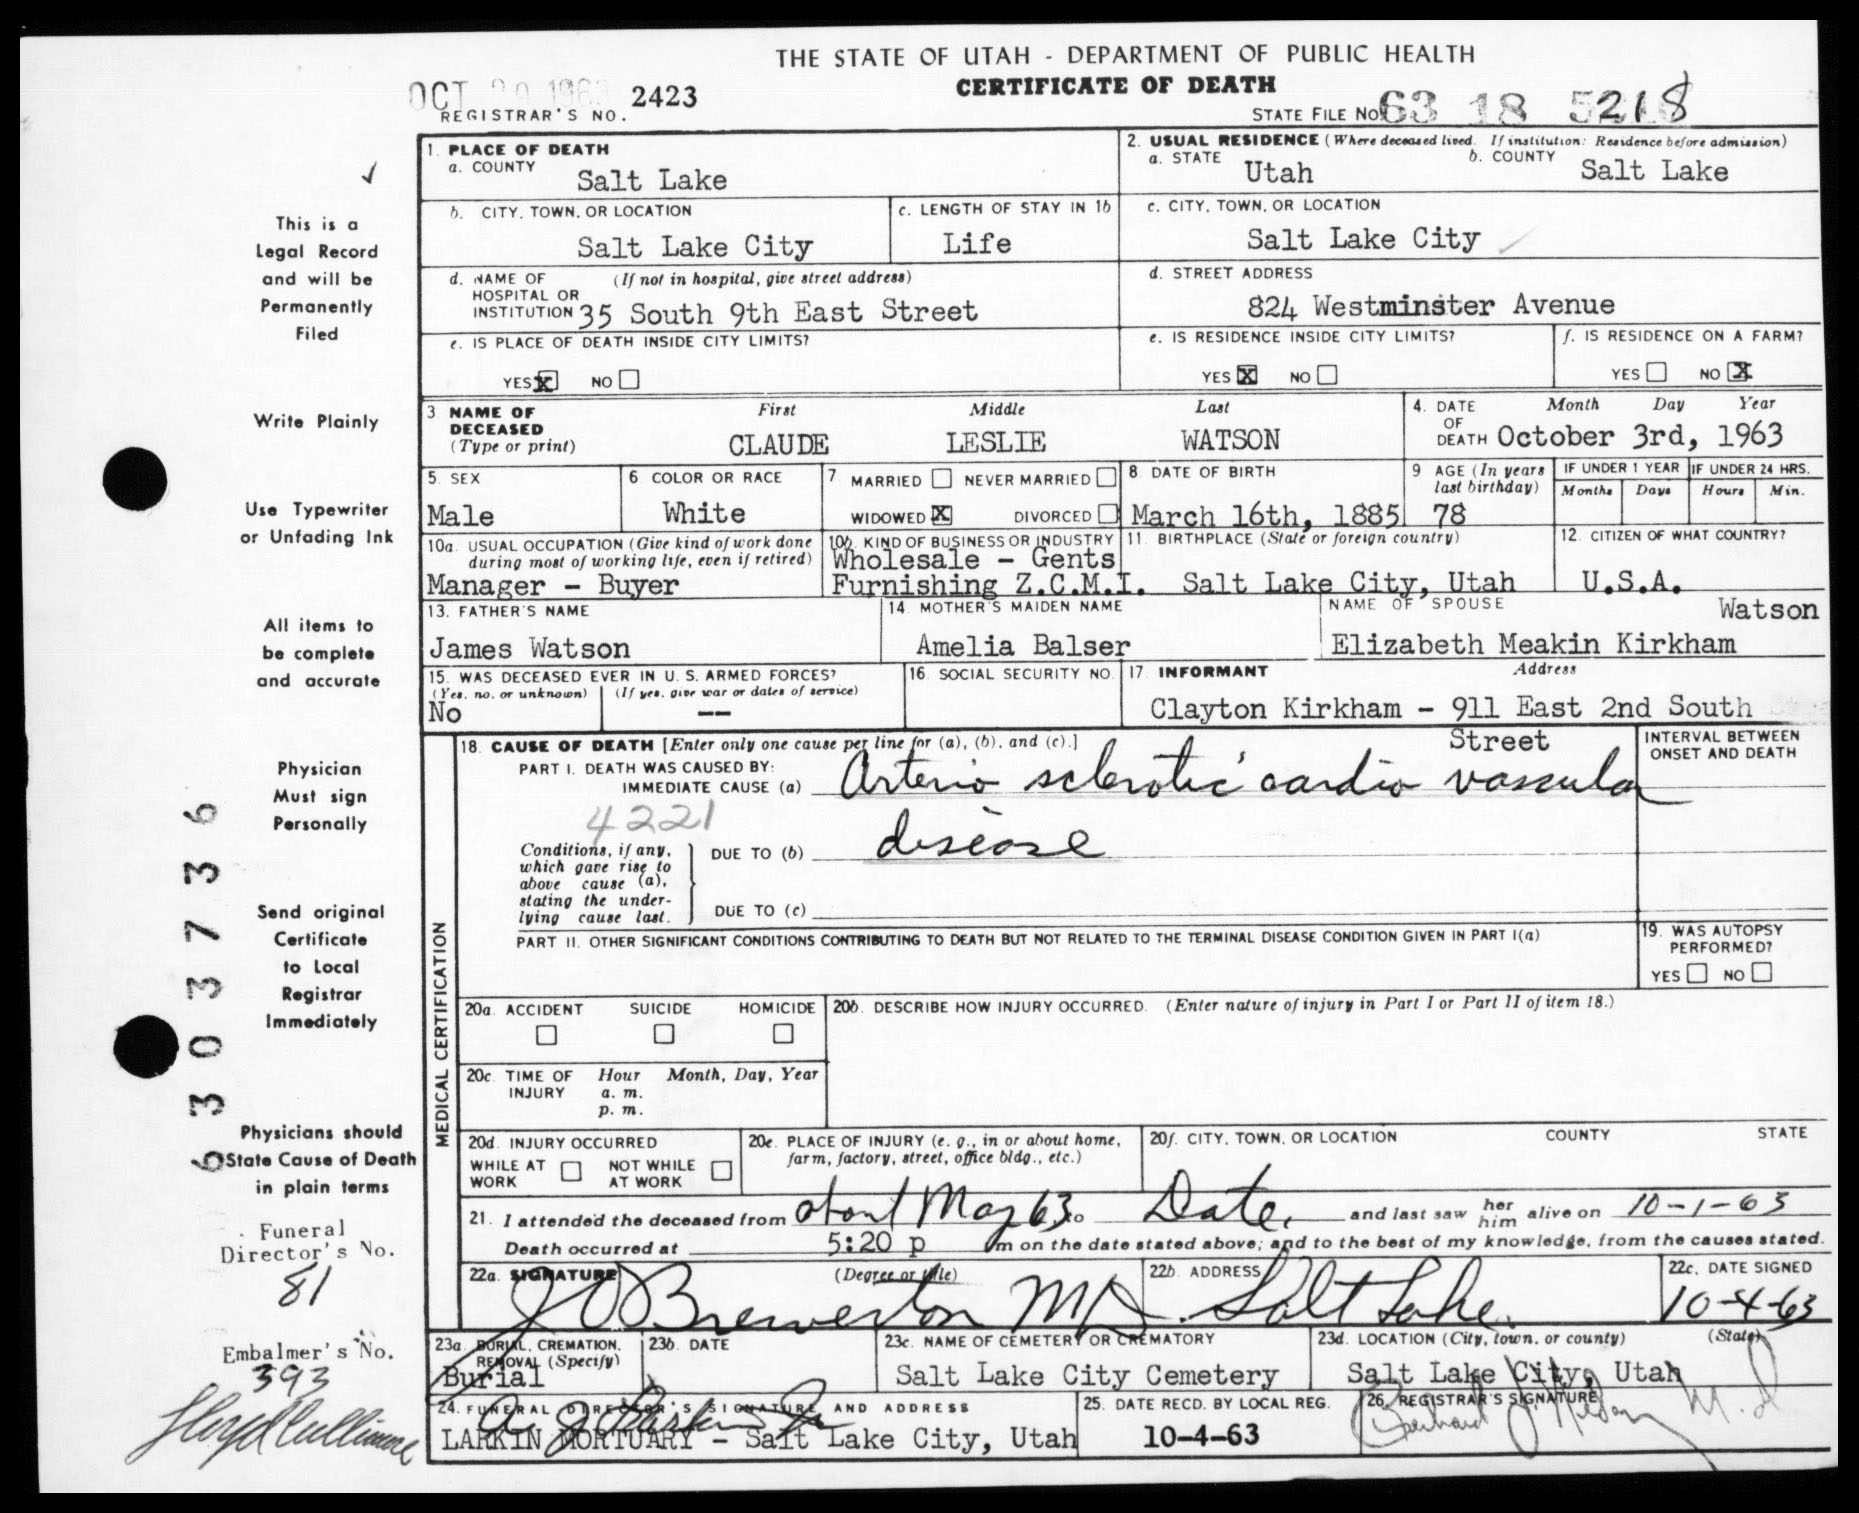 THE STATE OF UTAH - DEPARTMENT OF PUBLIC HEALTH
CERTIFICATE OF DEATH
OCT 2423
REGISTRAR'S NO.
STATE FILE NO. 63 18 5218
1. PLACE OF DEATH
a. COUNTY
Salt Lake
2. USUAL RESIDENCE (Where deceased lived. If institution: Residence before admission)
a. STATE
Utah
b. COUNTY
Salt Lake
b. CITY, TOWN, OR LOCATION
Salt Lake City
c. LENGTH OF STAY IN 1b
Life
c. CITY, TOWN, OR LOCATION
Salt Lake City
d. NAME OF (If not in hospital, give street address)
HOSPITAL OR
INSTITUTION 35 South 9th East Street
d. STREET ADDRESS
824 Westminster Avenue
e. IS PLACE OF DEATH INSIDE CITY LIMITS?
YES X NO
e. IS RESIDENCE INSIDE CITY LIMITS?
YES X NO
f. IS RESIDENCE ON A FARM?
YES NO X
3 NAME OF DECEASED
(Type or print)
First Middle Last
CLAUDE LESLIE WATSON
4. DATE OF DEATH
Month Day Year
October 3rd, 1963
5. SEX
Male
6 COLOR OR RACE
White
7 MARRIED NEVER MARRIED
WIDOWED X DIVORCED
8 DATE OF BIRTH
March 16th, 1885
9 AGE (In years last birthday)
78
IF UNDER 1 YEAR
Months Days
IF UNDER 24 HRS.
Hours Min.
10a. USUAL OCCUPATION (Give kind of work done
during most of working life, even if retired)
Manager - Buyer
10b. KIND OF BUSINESS OR INDUSTRY
Wholesale - Gents
Furnishing Z.C.M.I.
11. BIRTHPLACE (State or foreign country)
Salt Lake City, Utah
12. CITIZEN OF WHAT COUNTRY?
U.S.A.
13. FATHER'S NAME
James Watson
14. MOTHER'S MAIDEN NAME
Amelia Balser
NAME OF SPOUSE
Watson
Elizabeth Meakin Kirkham
15. WAS DECEASED EVER IN U. S. ARMED FORCES?
(Yes, no, or unknown) (If yes, give war or dates of service)
No --
16. SOCIAL SECURITY NO.
17. INFORMANT Address
Clayton Kirkham - 911 East 2nd South
Street
18. CAUSE OF DEATH [Enter only one cause per line for (a), (b), and (c).]
PART I. DEATH WAS CAUSED BY:
IMMEDIATE CAUSE (a) Arterio sclerotic cardio vascular
4221
Conditions, if any,
which gave rise to
above cause (a),
stating the under-
lying cause last.
DUE TO (b) disease
DUE TO (c)
INTERVAL BETWEEN
ONSET AND DEATH
PART II. OTHER SIGNIFICANT CONDITIONS CONTRIBUTING TO DEATH BUT NOT RELATED TO THE TERMINAL DISEASE CONDITION GIVEN IN PART I(a)
19. WAS AUTOPSY
PERFORMED?
YES NO
MEDICAL CERTIFICATION
20a. ACCIDENT SUICIDE HOMICIDE
20b. DESCRIBE HOW INJURY OCCURRED. (Enter nature of injury in Part I or Part II of item 18.)
20c. TIME OF Hour Month, Day, Year
INJURY a. m.
p. m.
20d. INJURY OCCURRED
WHILE AT WORK NOT WHILE AT WORK
20e. PLACE OF INJURY (e. g., in or about home,
farm, factory, street, office bldg., etc.)
20f. CITY, TOWN, OR LOCATION COUNTY STATE
21. I attended the deceased from about May 63 to Date, and last saw her him alive on 10-1-63
Death occurred at 5:20 p m on the date stated above; and to the best of my knowledge, from the causes stated.
22a. SIGNATURE (Degree or title)
J O Brewerton MD.
22b. ADDRESS
Salt Lake
22c. DATE SIGNED
10-4-63
23a. BURIAL, CREMATION,
REMOVAL (Specify)
Burial
23b. DATE
23c. NAME OF CEMETERY OR CREMATORY
Salt Lake City Cemetery
23d. LOCATION (City, town, or county) (State)
Salt Lake City, Utah
24. FUNERAL DIRECTOR'S SIGNATURE AND ADDRESS
LARKIN MORTUARY - Salt Lake City, Utah
25. DATE RECD. BY LOCAL REG.
10-4-63
26. REGISTRAR'S SIGNATURE
M.D
This is a
Legal Record
and will be
Permanently
Filed
Write Plainly
Use Typewriter
or Unfading Ink
All items to
be complete
and accurate
Physician
Must sign
Personally
Send original
Certificate
to Local
Registrar
Immediately
Physicians should
State Cause of Death
in plain terms
6303736
Funeral
Director's No.
81
Embalmer's No.
393
Lloyd Cullimore